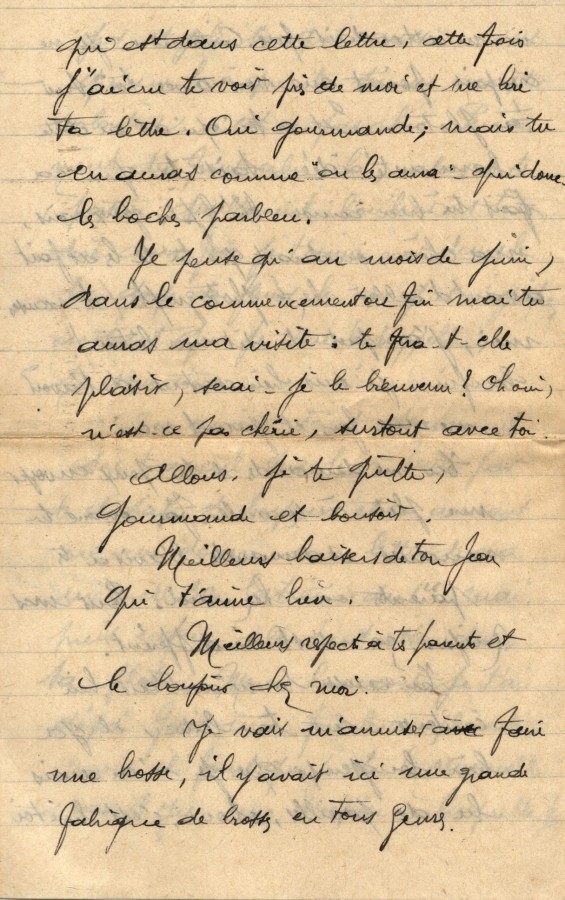 qui est dans cette lettre, cette fois
j'ai cru te voir près de moi et me lire
ta lettre. Oui gourmande, mais tu
en auras comme "on les aura" - qui donc -
les boches parbleu.
Je pense qu'au mois de juin,
dans le commencement ou fin mai tu
auras ma visite : te fera-t-elle
plaisir, serai-je le bienvenu? oh oui,
n'est-ce pas chérie, surtout avec toi.
Allons. je te quitte,
gourmande et bonsoir.
Meilleurs baisers de ton Jean
qui t'aime bien.
Meilleurs respects à tes parents et
le bonjour chez moi.
Je vais m'amuser à faire
une brosse, il y avait ici une grande
fabrique de brosses en tous genres.